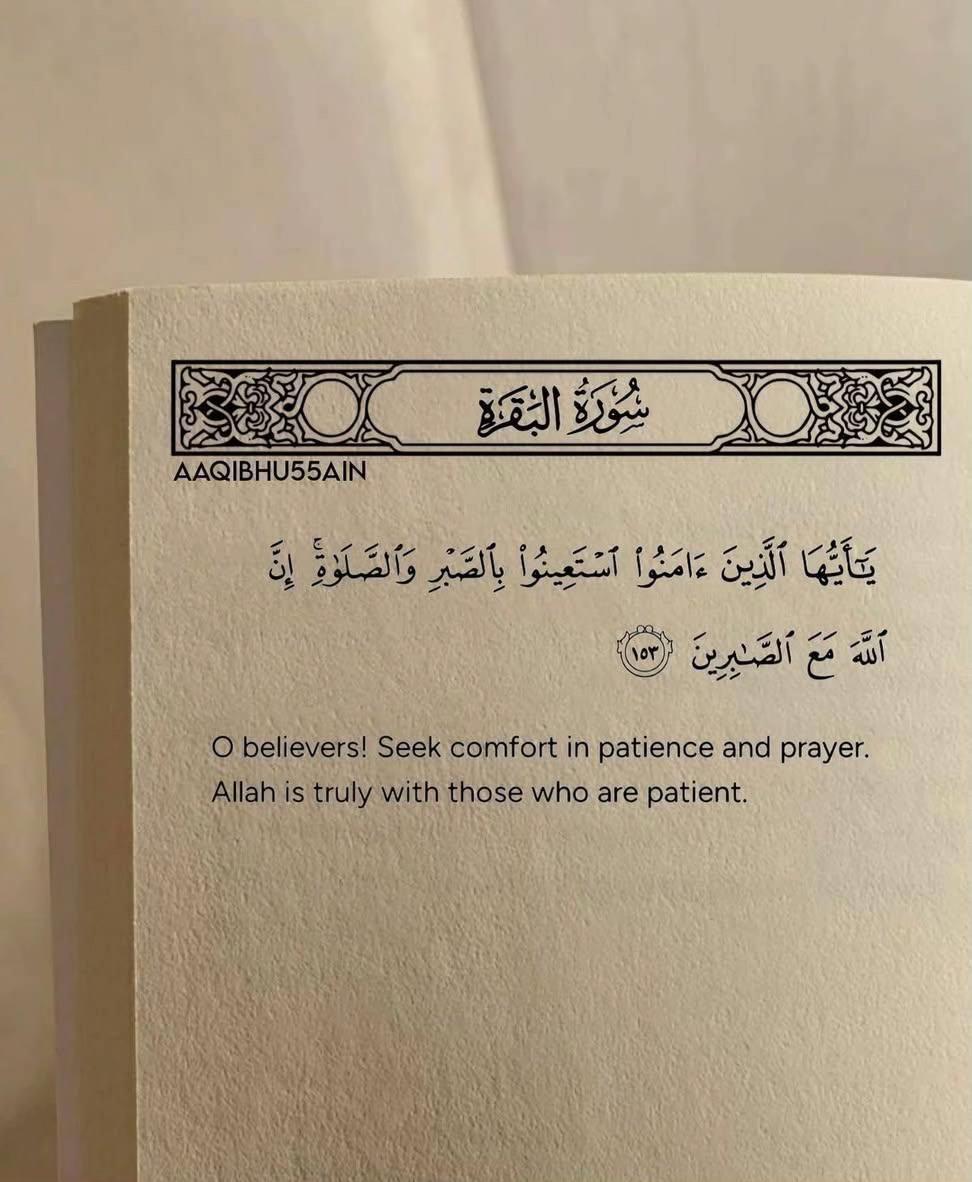 سُورَةُ البَقَرَةِ
AAQIBHU55AIN
يَـٰٓأَيُّهَا ٱلَّذِينَ ءَامَنُوا۟ ٱسْتَعِينُوا۟ بِٱلصَّبْرِ وَٱلصَّلَوٰةِ ۚ إِنَّ
ٱللَّهَ مَعَ ٱلصَّـٰبِرِينَ ١٥٣
O believers! Seek comfort in patience and prayer.
Allah is truly with those who are patient.